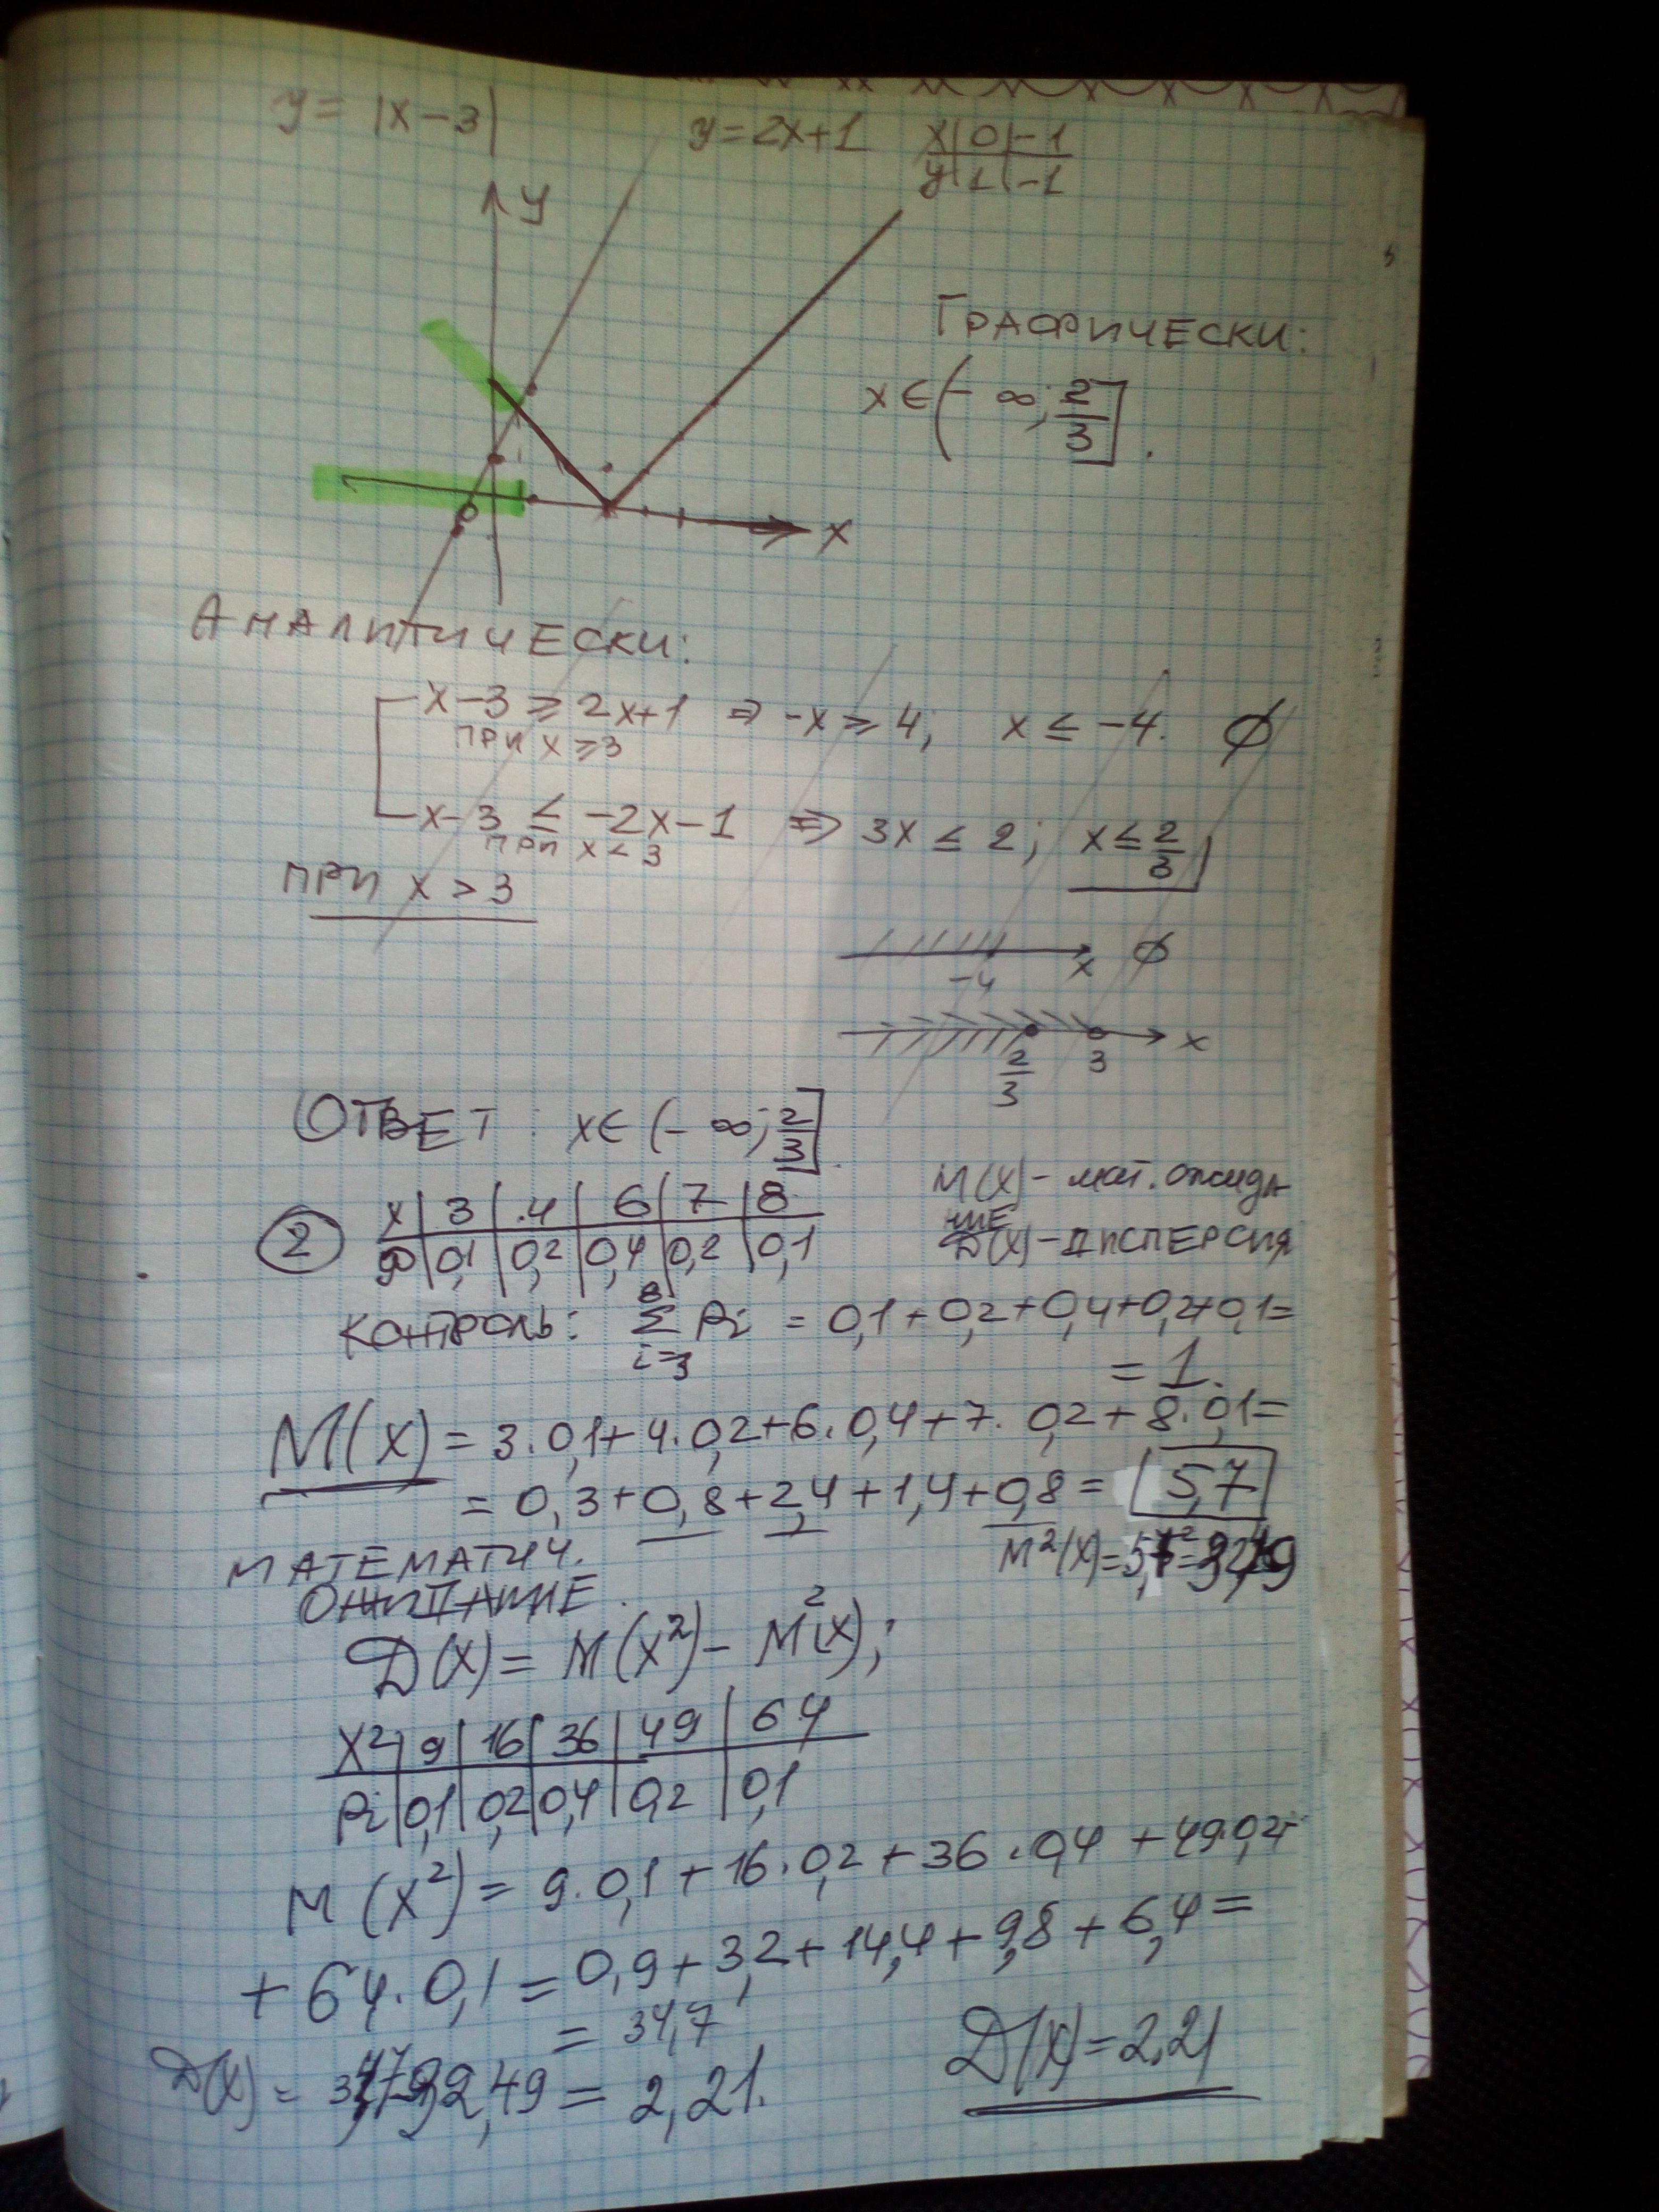 y = |x – 3|
y = 2x + 1
x | 0 | –1
y | 1 | –1
y
Графически:
x ∈ (– ∞; 2/3].
0
x
Аналитически:
x – 3 ≥ 2x + 1 ⇒ –x ≥ 4; x ≤ –4. ∅
при x ≥ 3
x – 3 ≤ –2x – 1 ⇒ 3x ≤ 2; x ≤ 2/3
при x < 3
при x > 3
–4 x ∅
2/3 3 x
Ответ: x ∈ (– ∞; 2/3].
M(X) – мат. ожидание
D(X) – дисперсия
② x | 3 | 4 | 6 | 7 | 8
p | 0,1 | 0,2 | 0,4 | 0,2 | 0,1
Контроль: 8 Σ i=3 Pi = 0,1 + 0,2 + 0,4 + 0,2 + 0,1 =
= 1.
M(x) = 3·0,1 + 4·0,2 + 6·0,4 + 7·0,2 + 8·0,1 =
= 0,3 + 0,8 + 2,4 + 1,4 + 0,8 = 5,7
Математич.
ожидание.
M²(X) = 5,7² = 32,49
D(x) = M(x²) – M²(x);
X² | 9 | 16 | 36 | 49 | 64
Pi | 0,1 | 0,2 | 0,4 | 0,2 | 0,1
M(x²) = 9·0,1 + 16·0,2 + 36·0,4 + 49·0,2 +
+ 64·0,1 = 0,9 + 3,2 + 14,4 + 9,8 + 6,4 =
= 34,7
D(x) = 34,7 – 32,49 = 2,21.
D(x) = 2,21